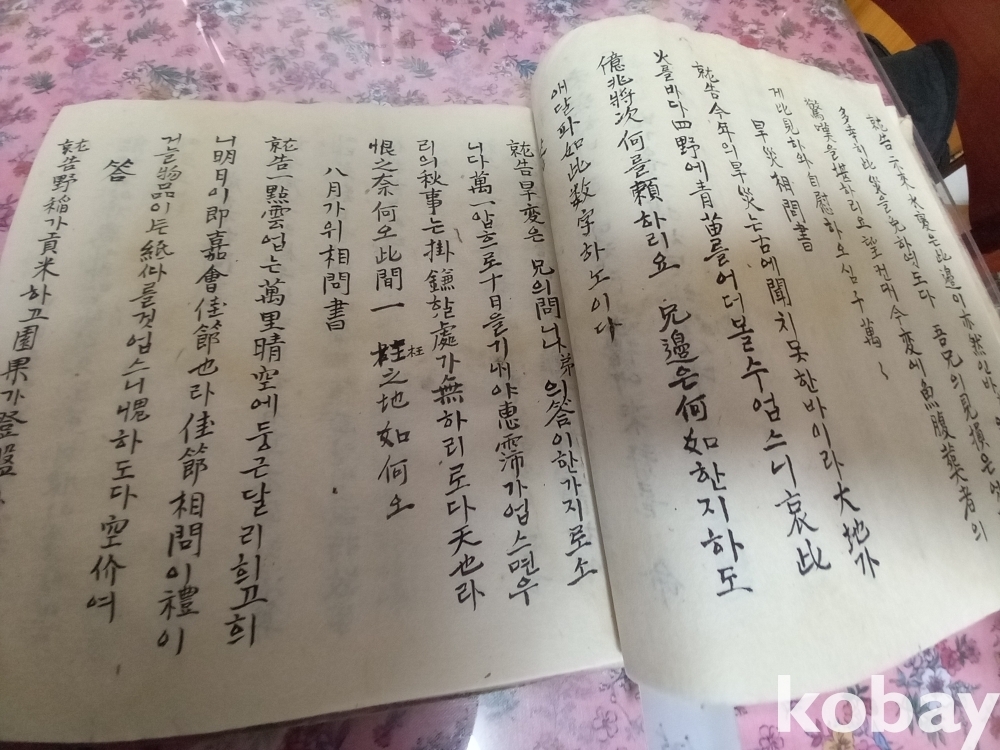 就告 六來水変는 此邊이 亦然인바
多幸히 此災을 免하엿도다 吾兄의 見損은
驚嘆을 하리오 望컨대 今変에 魚腹葬者의
게 比見하와 自慰하오심 千萬
旱災相問書
就告 今年의 旱災는 古에 聞치 못한 바이라 大地가
火를 바다 四野에 靑苗를 어더 볼 수 업스니 哀此
億兆將次何를 賴하리요 兄邊은 何如한지 하도
애달파 如此數字하노이다
就告 旱変은 兄의 問나 弟의 答이 한가지로소
니다 萬一 압흐로 十日을 기내야 惠霈가 업스면 우
리의 秋事는 掛鎌할 處가 無하리로다 天也라
恨之奈何오 此間一 枉之地 如何오
八月가위 相問書
就告 一點雲 업는 萬里晴空에 둥근달리 희고 희
니 明日이 即嘉會佳節也라 佳節相問이 禮이
건늘 物品이는 紙싸를 것 업스니 愧하도다 空价여
答
就告 野稻가 貢米하고 園果가 登盤
kobay